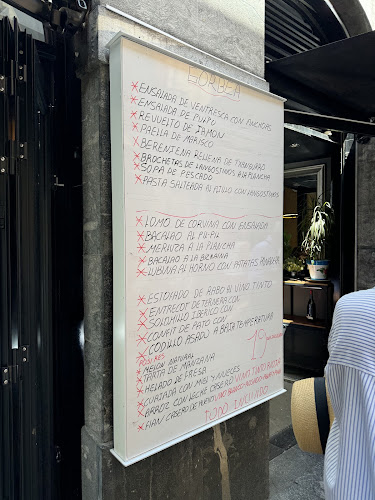 GORBEA
*ENSALADA DE VENTRESCA CON ANCHOAS
*ENSALADA DE PULPO
*REVUELTO DE JAMON
*PAELLA DE MARISCO
*BERENJENA RELLENA DE
*BROCHETAS DE LANGOSTINOS A LA PLANCHA
*SOPA DE PESCADO
*PASTA SALTEADA AL AJILLO CON LANGOSTINOS
*LOMO DE CORVINA CON ENSALADA
*BACALAO AL PIL-PIL
*MERLUZA A LA PLANCHA
*BACALAO A LA
*LUBINA AL HORNO CON PATATAS PANADERA
*ESTOFADO DE RABO AL VINO TINTO
*ENTRECOT DE TERNERA CON
*SOLOMILLO IBERICO CON
*CONFIT DE PATO CON
*CODILLO ASADO A BAJA TEMPERATURA
POSTRES
*MELON NATURAL
*TARTA DE MANZANA
*HELADO DE FRESA
*CUAJADA CON MIEL Y NUECES
*ARROZ CON LECHE CASERO
*FLAN CASERO DE HUEVO
19
VINO TINTO
TODO INCLUIDO